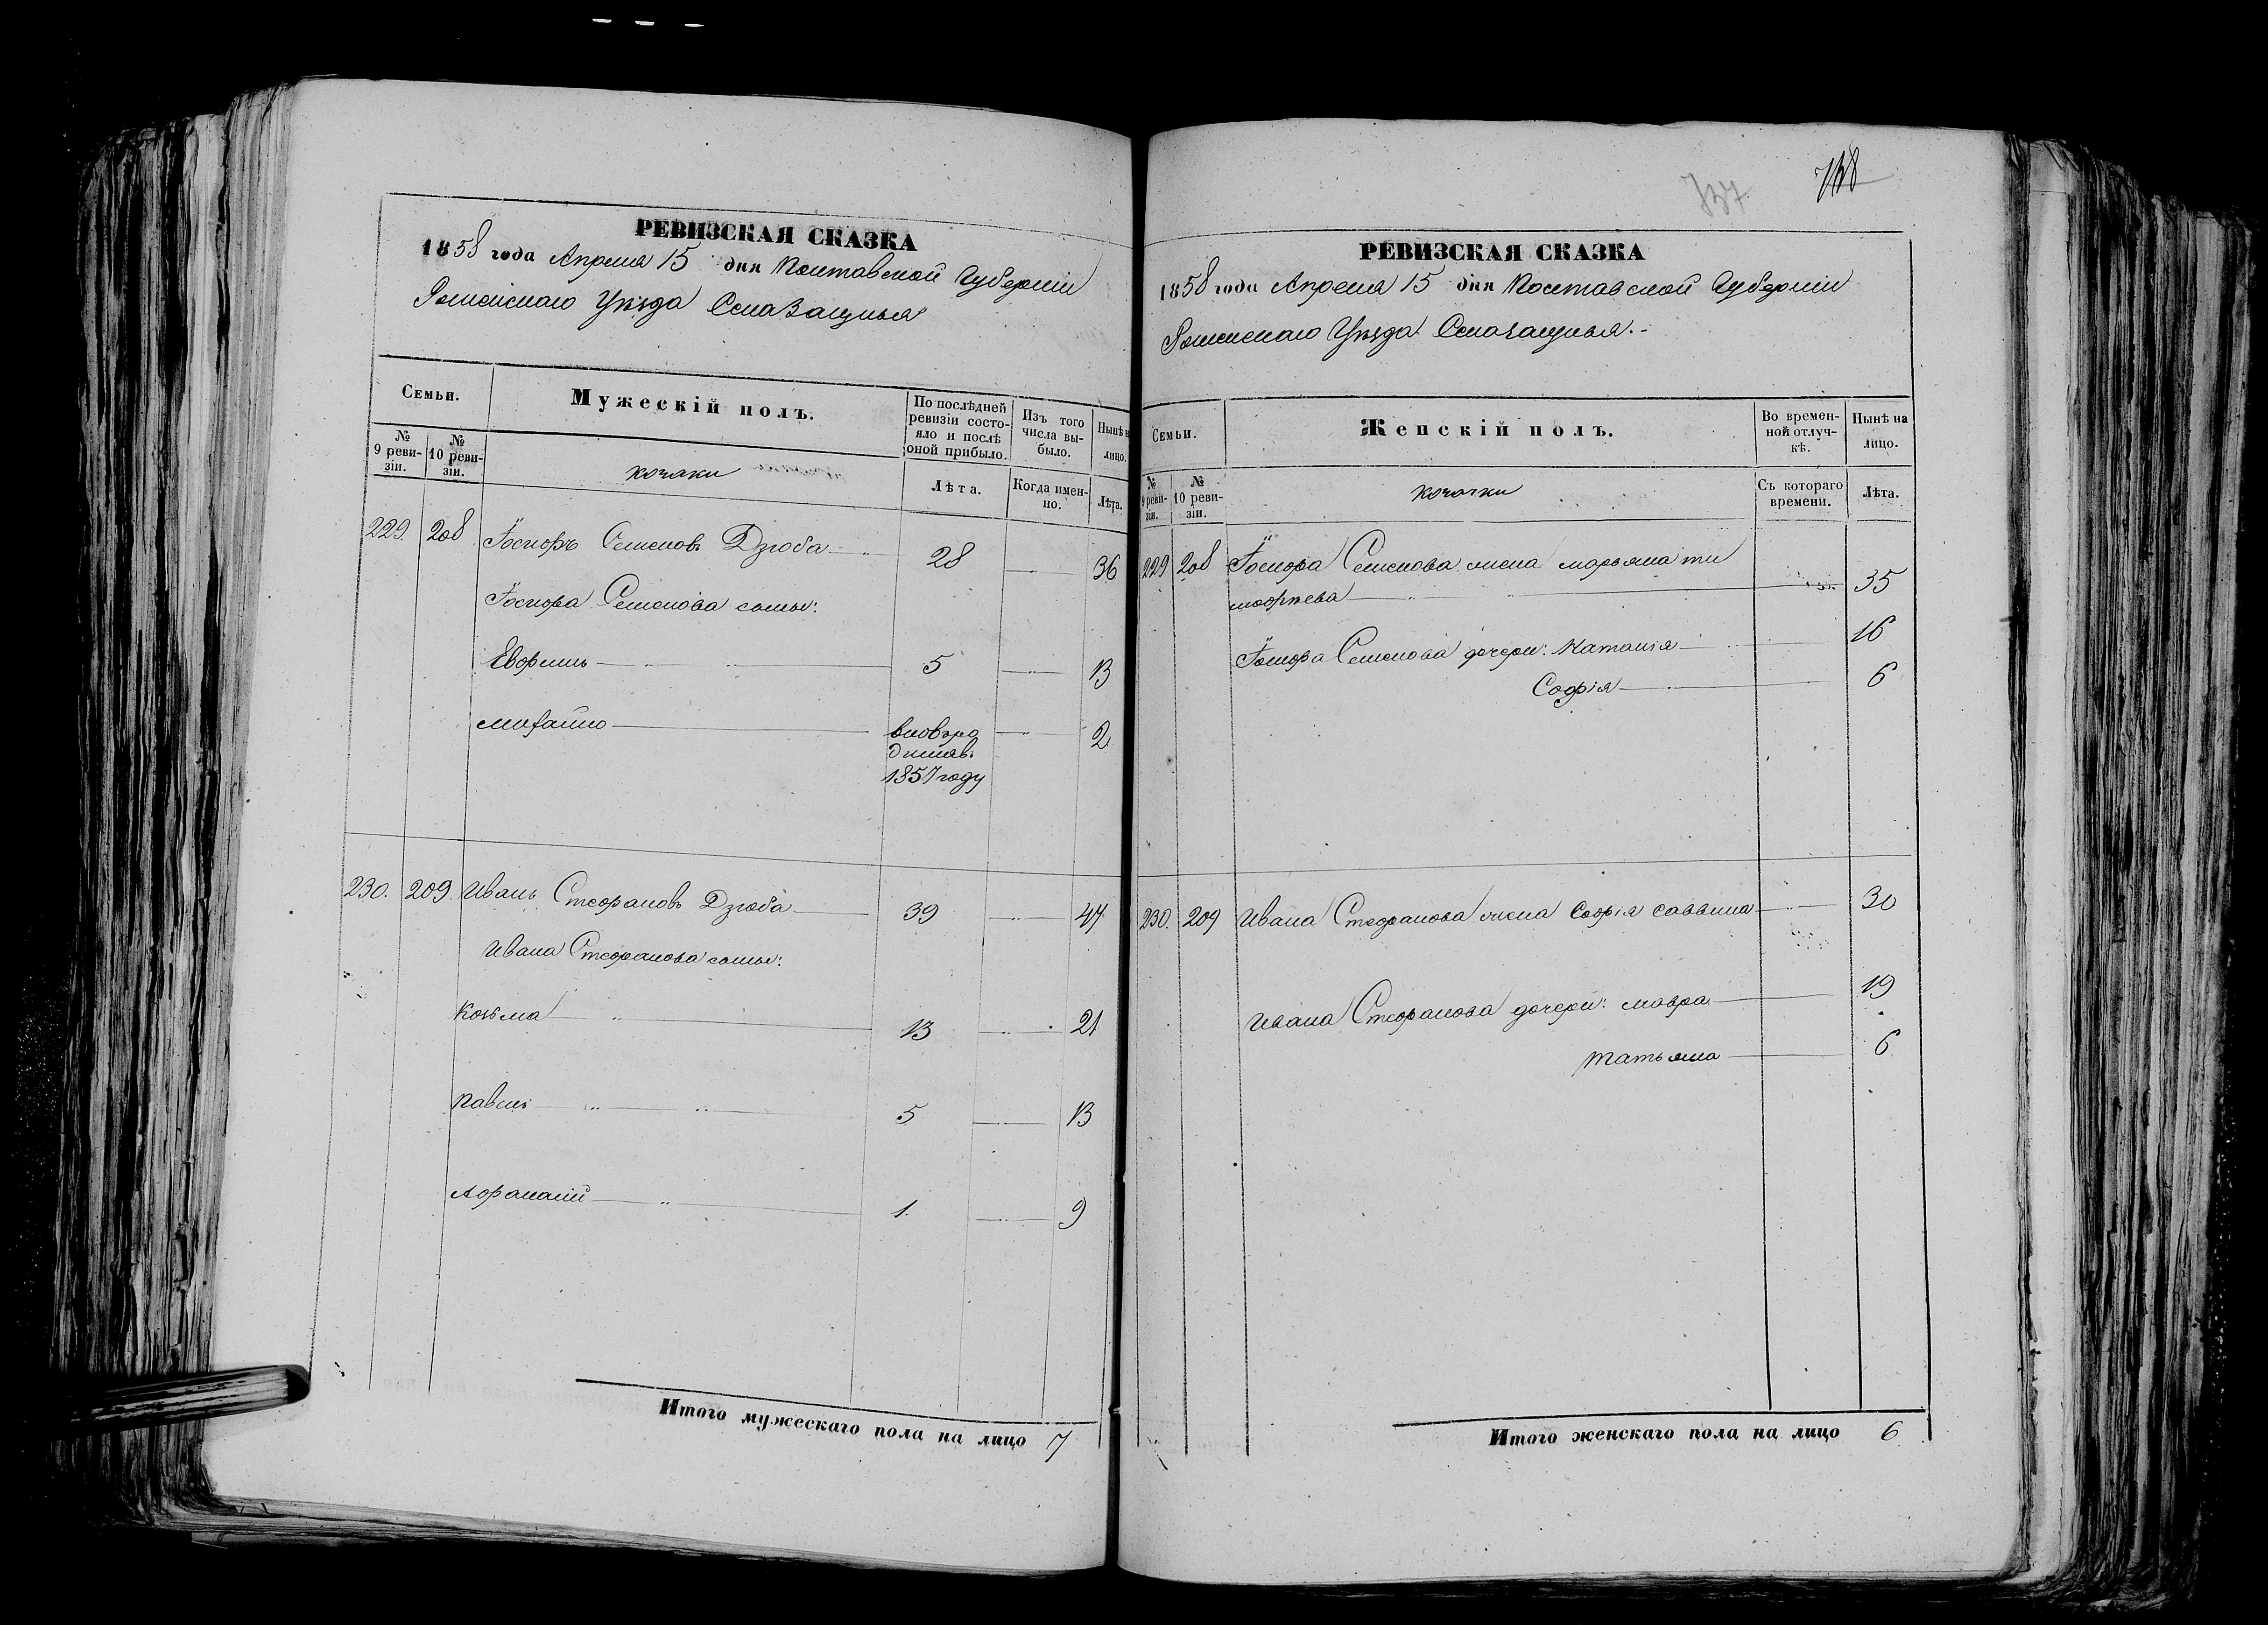 РЕВИЗСКАЯ СКАЗКА
1858 года Апреля 15 дня Полтавской Губерніи
Роменскаго Уѣзда
Семьи.
Мужескій полъ.
По послѣдней ревизіи состояло и послѣ оной прибыло.
Изъ того числа выбыло.
Нынѣ н лицо.
№ 9 ревизіи.
№ 10 ревизіи.
козаки
Лѣта.
Когда именно.
Лѣта.
229. 208 Іосифъ Семеновъ Дзюба 28 36
Іосифа Семенова сыны:
Ефремъ 5 13
михайло вновъ родился в 1857 году 2
230. 209. Иванъ Стефановъ Дзюба 39 47
Ивана Стефанова сыны:
Козьма 13 21
Павелъ 5 13
Афанасій 1 9
Итого мужескаго пола на лицо 7
737 738
РЕВИЗСКАЯ СКАЗКА
1858 года Апреля 15 дня Полтавской Губерніи
Роменскаго Уѣзда
Семьи.
Женскій полъ.
Во временной отлучкѣ.
Нынѣ на лицо.
№ 9 ревизіи.
№ 10 ревизіи.
козачки
Съ котораго времени.
Лѣта.
229 208 Іосифа Семенова жена марьяна ти
мофѣева 35
Іосифа Семенова дочери: Наталія 16
Софія 6
230. 209 Ивана Стефанова жена Софія саввина 30
Ивана Стефанова дочери: мавра 19
татьяна 6
Итого женскаго пола на лицо 6